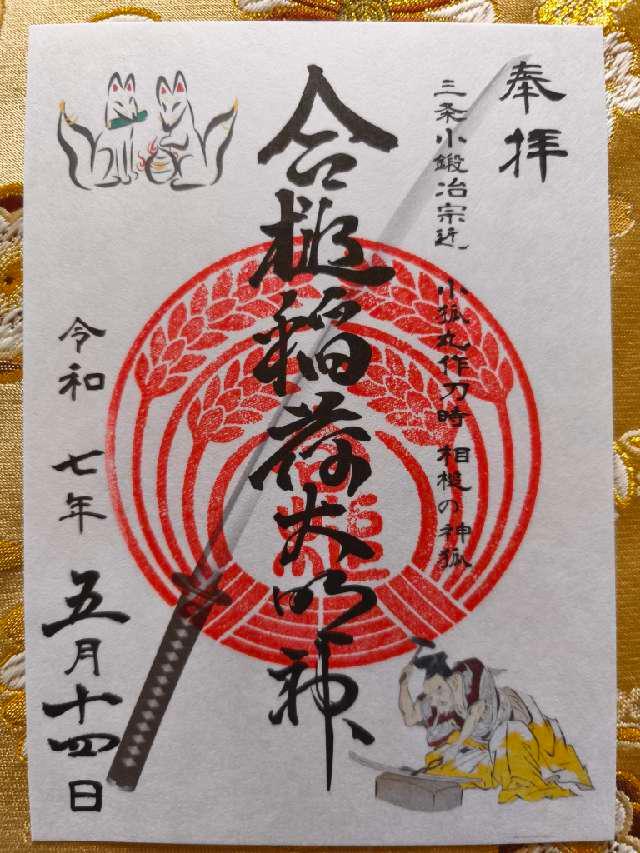 奉拝
三条小鍛冶宗近 小狐丸作刀時 相槌の神狐
合槌稲荷大明神
令和 七年 五月十四日